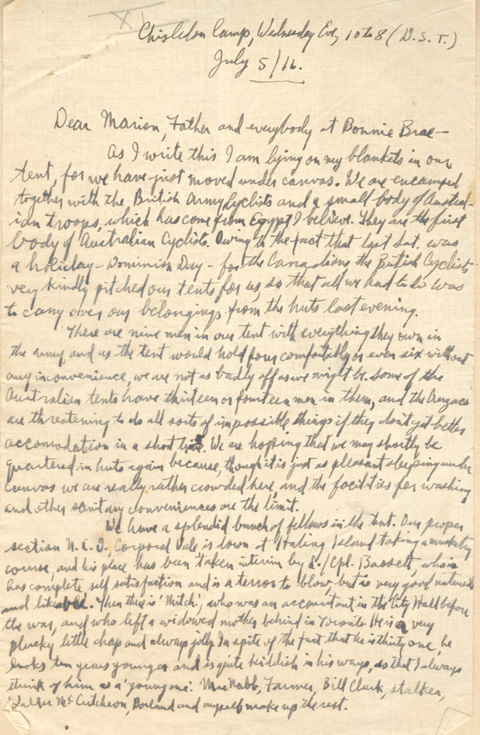 XI
Chisledon Camp, Wednesday Eve, 10 to 8 (D.S.T.)
July 5/16.
Dear Marion, Father and everybody at Bonnie Brae –
As I write this I am lying on my blankets in our
tent, for we have just moved under canvas. We are encamped
together with the British Army Cyclists and a small body of Austral-
ian troops, which has come from Egypt I believe. They are the first
body of Australian Cyclists. Owing to the fact that last Sat. was
a holiday – Dominion Day – for the Canadians the British Cyclists
very kindly pitched our tents for us, so that all we had to do was
to carry over our belongings from the huts last evening.
There are nine men in our tent with everything they own in
the army, and as the tent would hold four comfortably or even six without
any inconvenience, we are not as badly off as we might be. Some of the
Australian tents have thirteen or fourteen men in them, and the Anzacs
are threatening to do all sorts of impossible things if they don't get better
accomodation in a short time. We are hopping that we may shortly be
quartered in huts again because, though it is just as pleasant sleeping under
canvas we are really rather crowded here, and the facilities for washing
and other sanitary conveniences are the limit.
We have a splendid bunch of fellows in the tent. Our proper
section N.C.O. Corporal Vale is down at Hayling Island taking a musketry
course, and his place has been taken interim by L./Cpl. Bassett, who
has complete self satisfaction and is a terror to blow, but is very good natured
and likeable. Then there is 'Mitch', who was an accountant in the City Hall before
the war, and who left a widowed mother behind in Toronto. He is a very
plucky little chap and always jolly. In spite of the fact that he is thirty one, he
looks ten years younger and is quite kiddish in his ways, so that I always
think of him as a 'young one'. MacNabb, Farmer, Bill Clark, Stalker,
McCutcheon, Borland and myself make up the rest.